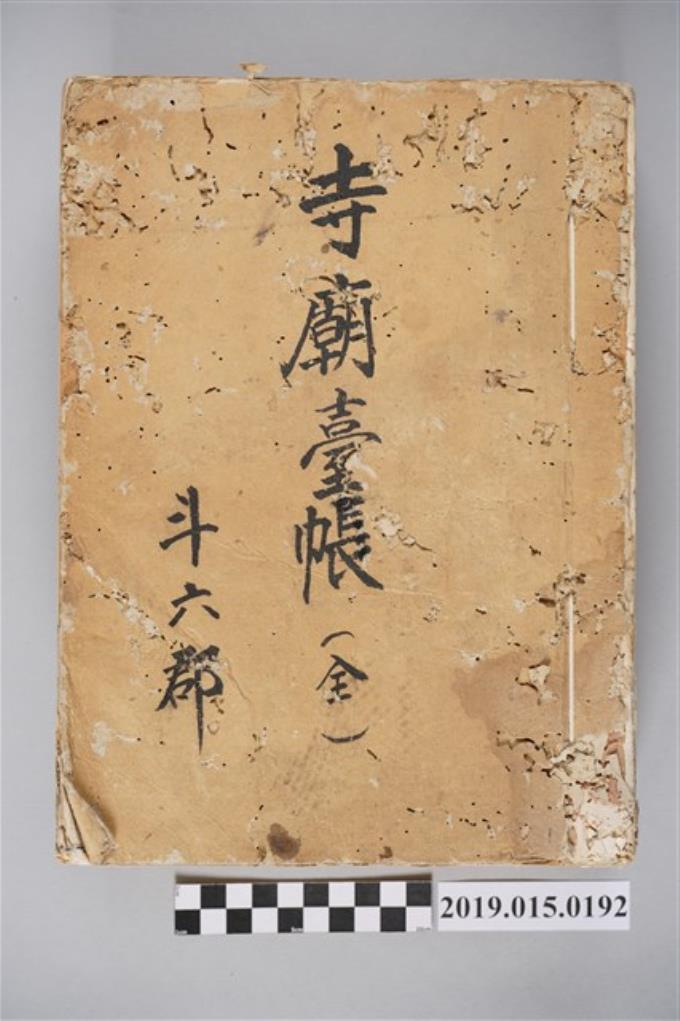 寺廟臺帳（全）
斗六郡
2019.015.0192